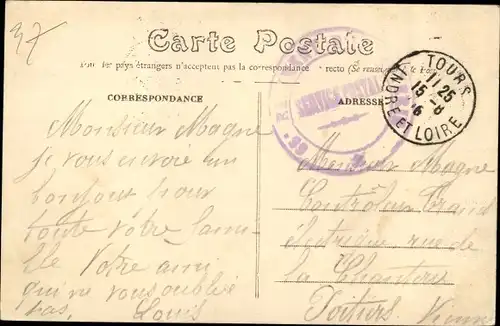 37
Carte Postale
Tous les pays étrangers n'acceptent pas la correspondance au recto (Se renseigner à la Poste)
CORRESPONDANCE
ADRESSE
TOURS
11 25
15 -8
INDRE ET LOIRE
SERVICE POSTAL
Monsieur Magne
Je vous envoie un
bonjour pour
toute votre fami-
lle Votre ami
qui ne vous oublie
pas, Louis
Monsieur Magne
Contrôleur
rue de
la Chanterie
Poitiers Vienne